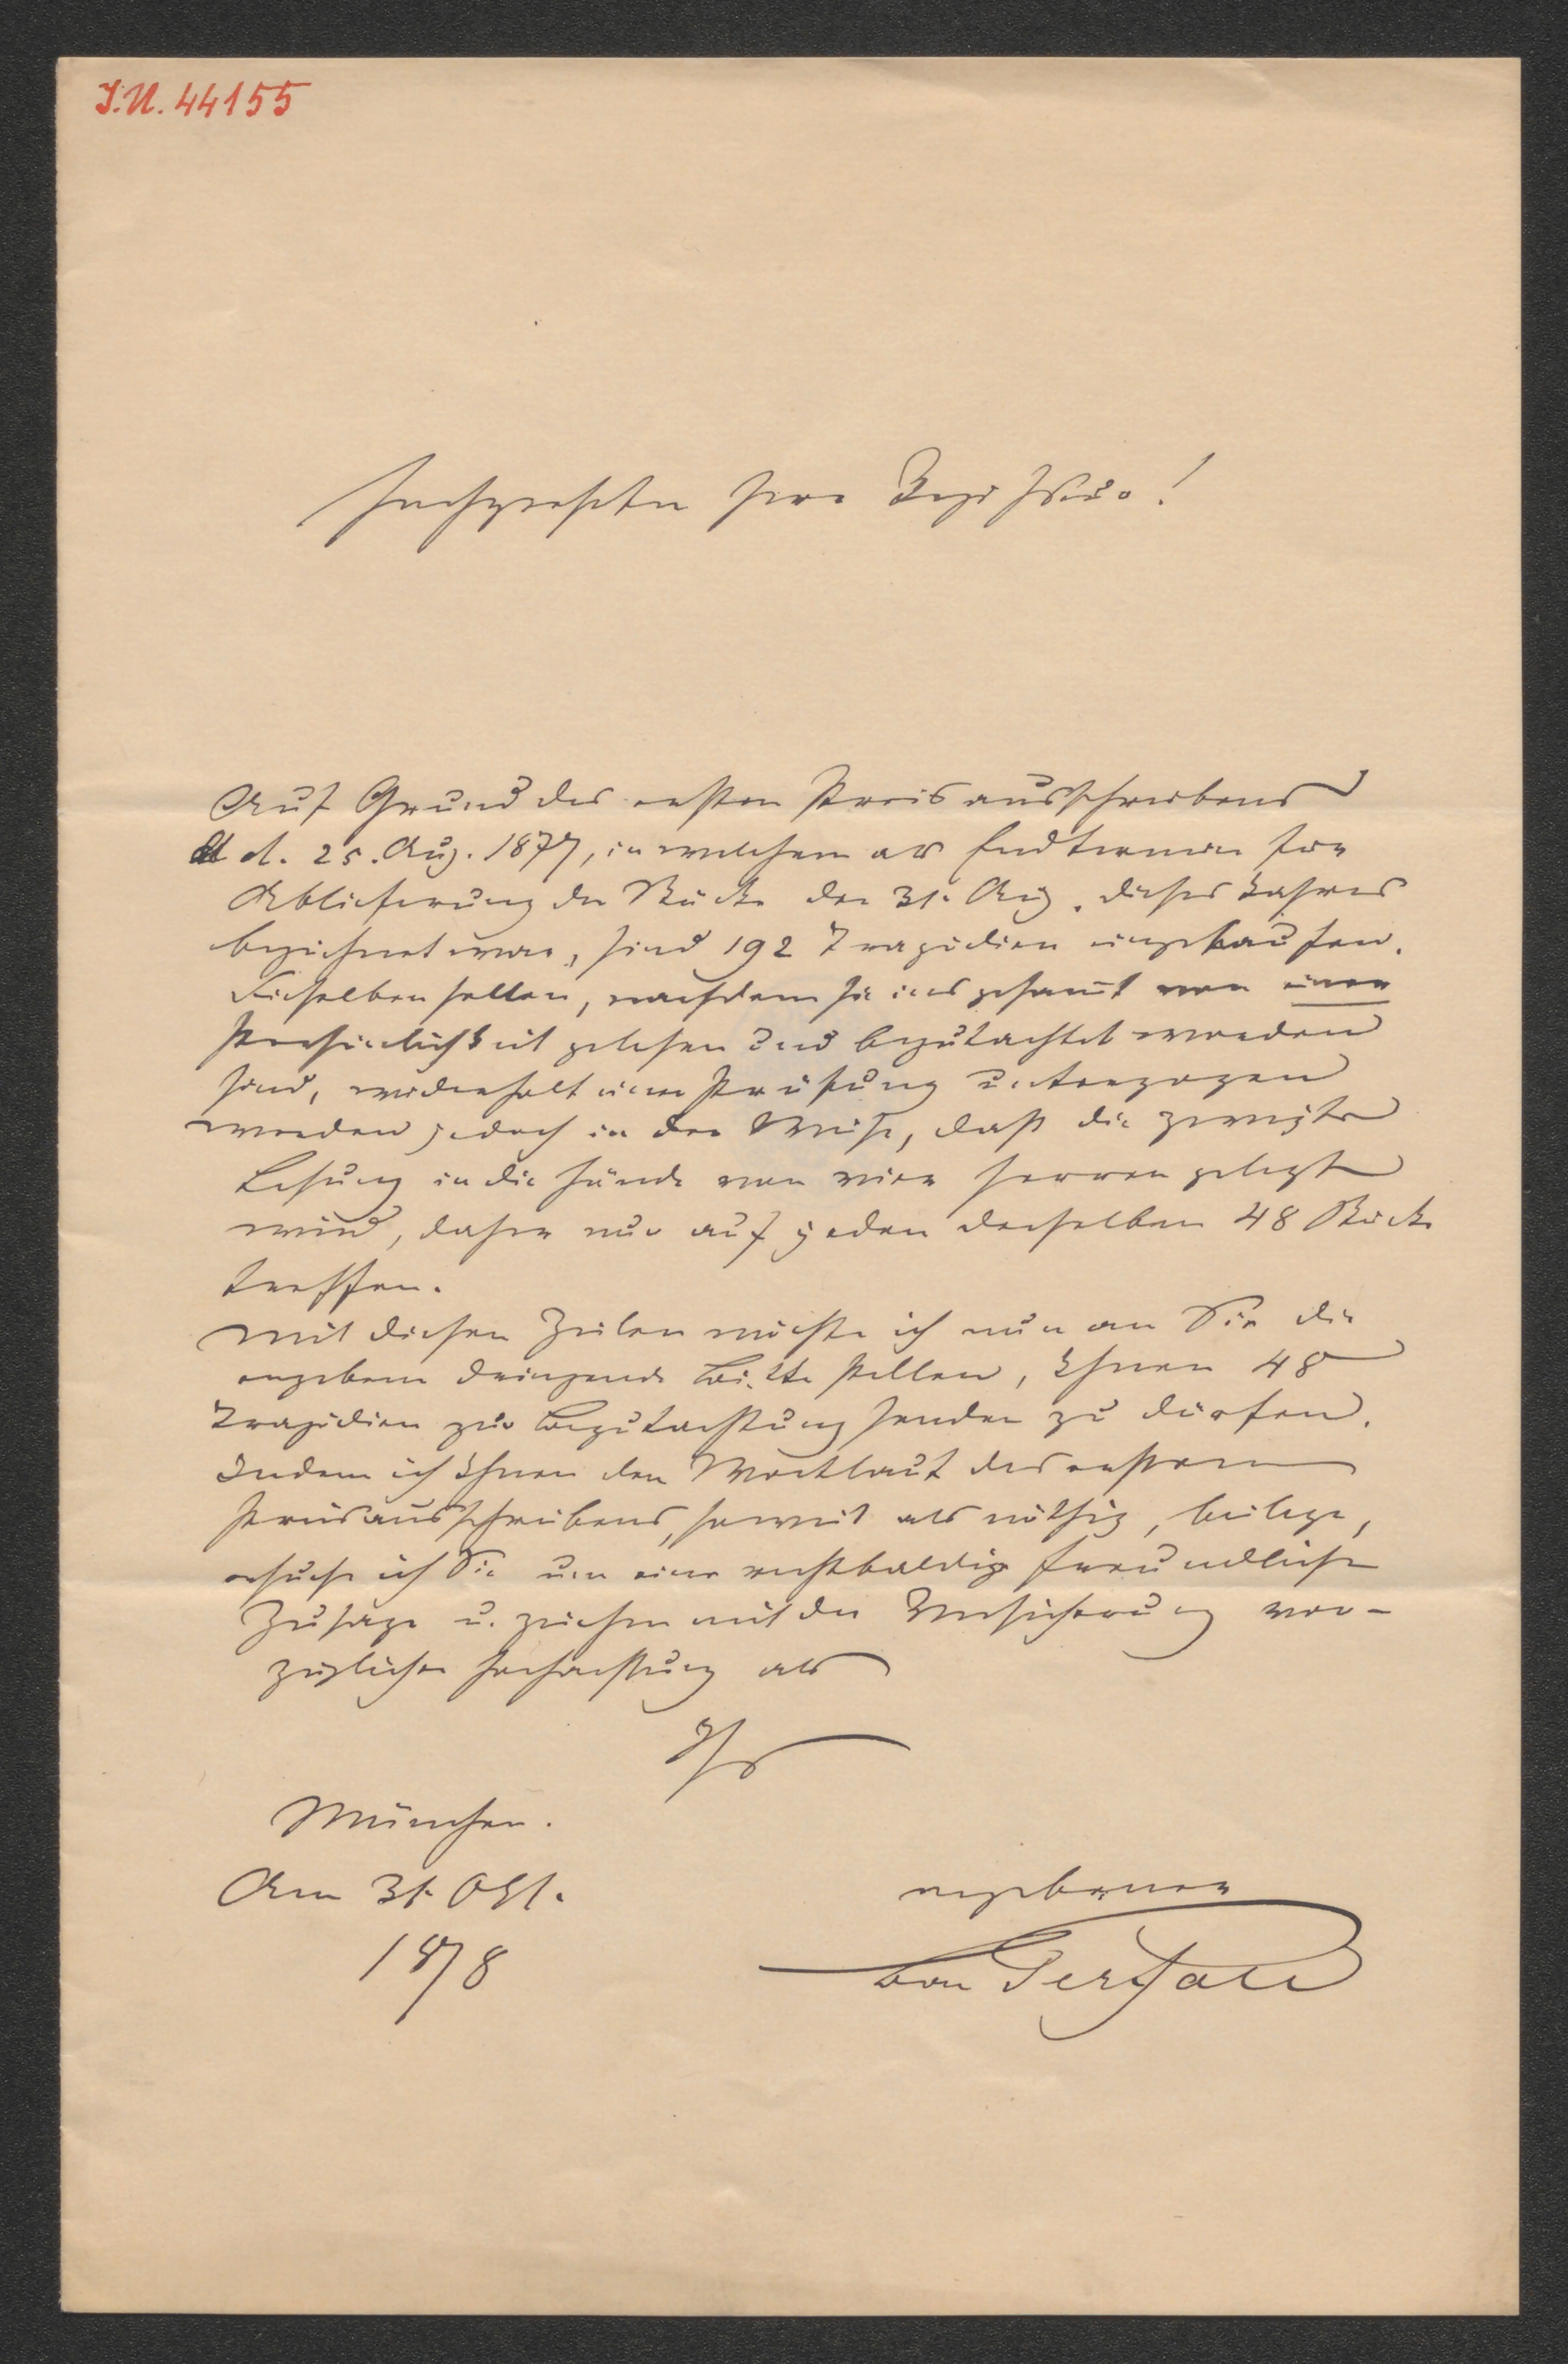 I.N. 44155
Hochgeehrter Herr Regisseur!
Auf Grund des ersten Preisausschreibens
d. d. 25. Aug. 1877, in welchem als Endtermin für
Ablieferung der Stücke der 31. Aug. dieses Jahres
bezeichnet war, sind 192 Tragödien eingelaufen.
Dieselben sollen, nachdem sie insgesamt von einer
Persönlichkeit gelesen und begutachtet worden
sind, wiederholt einer Prüfung unterzogen
werden jedoch in der Weise, daß die zweite
Lesung in die Hände von vier Herren gelegt
wird, daher nur auf jeden derselben 48 Stücke
treffen.
Mit diesen Zeilen möchte ich nun an Sie die
ergebene dringende Bitte stellen, Ihnen 48
Tragödien zur Begutachtung senden zu dürfen.
Indem ich Ihnen den Wortlaut des ersten
Preisausschreibens, soweit als nöthig, beilege,
ersuche ich Sie um eine rechtbaldige freundliche
Zusage u. zeichne mit der Versicherung vor-
züglicher Hochachtung als
Ihr
München.
Am 31. Okt.
1878
ergebener
von Perfall